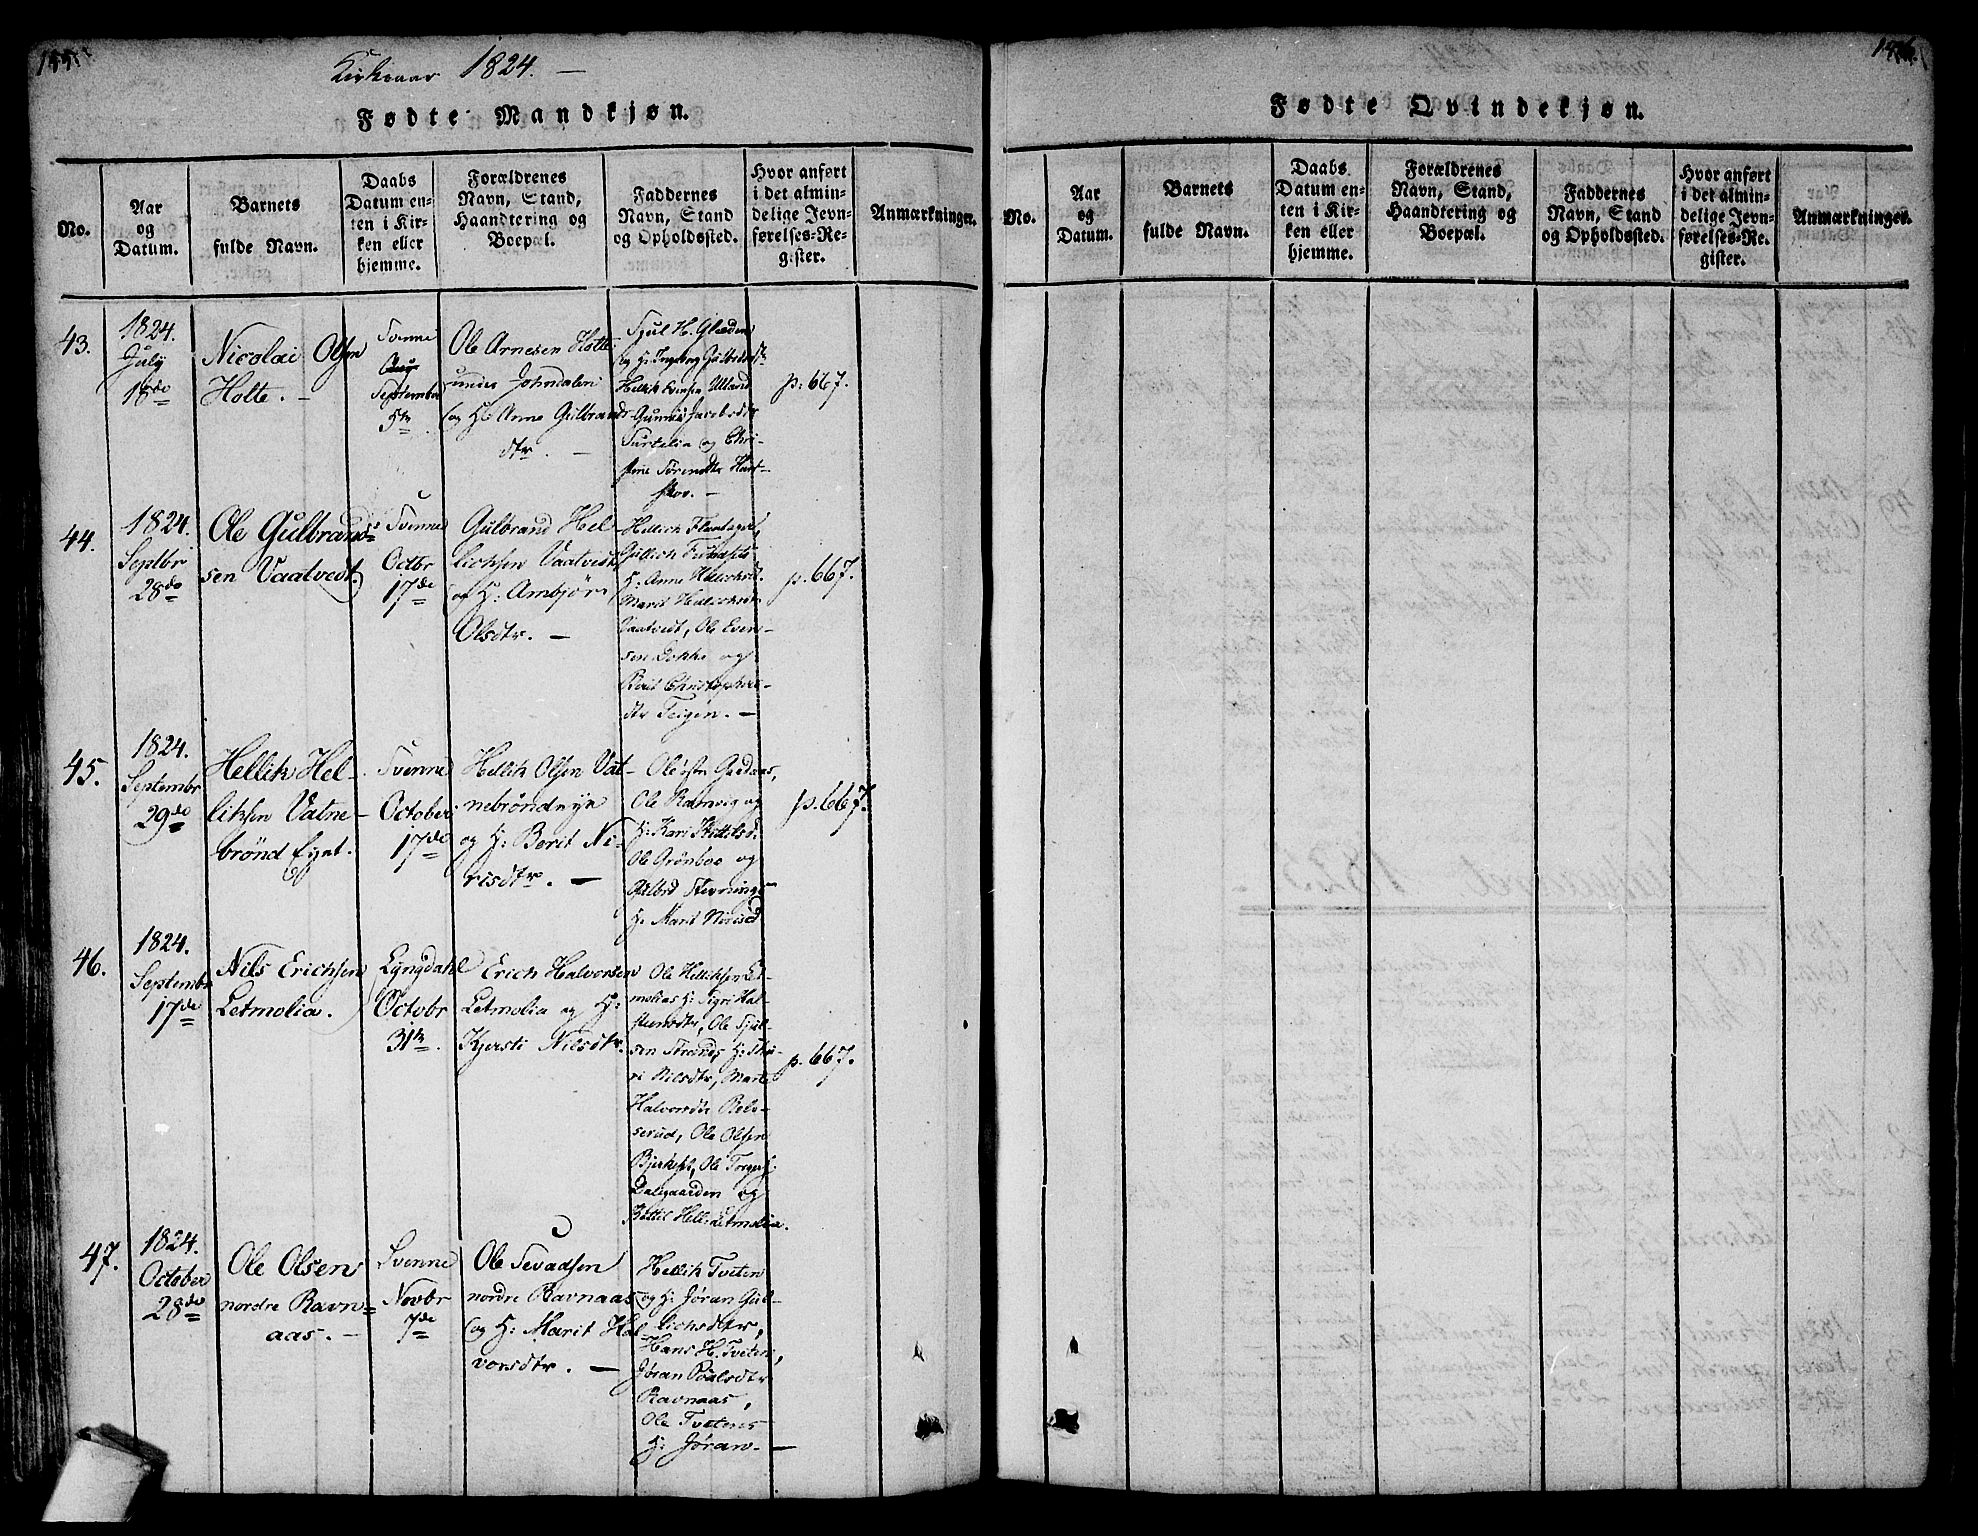 Kirkeaar 1824. —
Fødte Mandkjøn.
No.
Aar
og
Datum.
Barnets
fulde Navn.
Daabs
Datum en-
ten i Kir-
ken eller
hjemme.
Forældrenes
Navn, Stand,
Haandtering og
Boepæl.
Faddernes
Navn, Stand
og Opholdssted.
Hvor anført
i det almin-
delige Jevn-
førelses-Re-
gister.
Anmærkninger.
43.
1824.
July
18de
Nicolai Olsen
Holte. —
Svenne
September
5te
Ole Arnesen Holte
under Johndalen
og H: Anne Gulbrands
dtr. —
Sjul H. Glæden
og H: Ingeborg Gulbrdsdtr
Hellik Evensen Ulland
Gunnil Jacobsdtr
Surtelia og Chri-
stine Sørensdtr Hav-
skov. —
p: 667.
44.
1824.
Septbr
28de
Ole Gulbrand-
sen Vaatvedt
Svenne
Octbr
17de
Gulbrand Hel-
lichsen Vaatvedt
og H: Ambjør
Olsdtr. —
Hellich
Gullich
H: Anne Hellichsd.
Marit Hellichsdr
Vaatvedt, Ole Even-
sen Dokke og
Berit Christophers-
dtr Teigen. —
p. 667.
45.
1824.
Septembr
29de
Hellik Hel-
liksen Vatne-
brønd Eyet.
Svenne
October
17de
Hellik Olsen Vat-
nebrøndeye
og H: Berit Ni-
risdtr. —
Ole
Ole Ramvig og
H: Kari Kittilsd.
Ole Grønboe og
H: Marit Nirisd
p. 667.
46.
1824.
Septembr
17de
Nils Erichsen
Letmolia.
Lyngdahl
Octobr
31te
Erich Halvorsen
Letmolia og H:
Kjersti Nilsdtr.
Ole Helliksen Let-
molias H: Sigri Hal-
steensdtr, Ole Sjul-
sen Strands H: Thu-
ri Nilsdtr, Marte
Halvorsdtr
serud, Ole Olsen
Ole Torgers
Dalsgaarden og
Kittil Hell: Letmolia.
p. 667.
47.
1824.
October
28de
Ole Olsen
nordre Ravn-
aas. —
Svenne
Novbr
7de
Ole Sevadsen
nordre Ravnaas
og H: Marit Hal-
vorsdtr. —
Hellik Tveten
og H: Jøran Gul-
lichsdtr,
Hans H. Tveten,
Jøran Poalsdtr
Ravnaas,
Ole Tvetens
H: Jøran. —
Fødte Qvindekjøn.
No.
Aar
og
Datum.
Barnets
fulde Navn.
Daabs
Datum en-
ten i Kir-
ken eller
hjemme.
Forældrenes
Navn, Stand,
Haandtering og
Boepæl.
Faddernes
Navn, Stand
og Opholdssted.
Hvor anført
i det almin-
delige Jevn-
førelses-Re-
gister.
Anmærkninger.